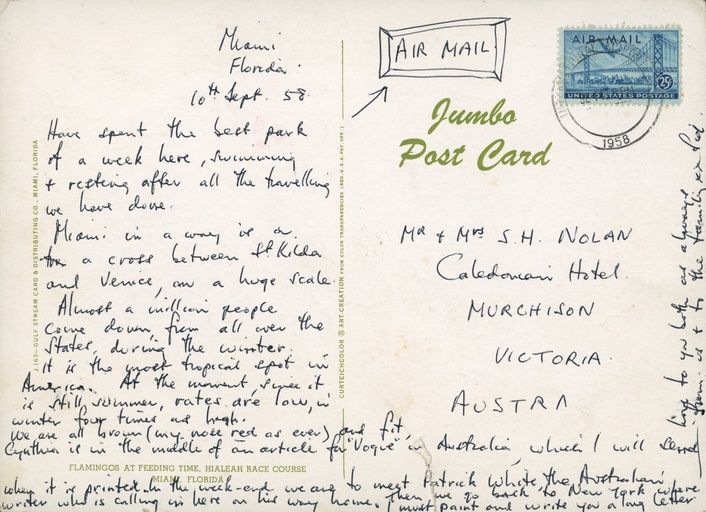 Miami
Florida.
10th Sept. 58
Have spent the best park
of a week here, swimming
& resting after all the travelling
we have done.
Miami in a way is a
a cross between St Kilda
and Venice, on a huge scale.
Almost a million people
come down from all over the
States, during the winter.
it is the most tropical spot in
America. At the moment, since it
is still summer, rates are low, in
winter four times as high.
We are all brown (my nose red as ever) and fit,
Cynthia is in the middle of an article for "Vogue" in Australia, which I will send
when it is printed. In the week-end we are to meet Patrick White, the Australian
writer who is calling in here on his way home. Then we go back to New York where
I must paint and write you a long letter
love to you both as always
from us & to the family xx Sid.
AIR MAIL
AIR MAIL
25¢
UNITED STATES POSTAGE
1958
Jumbo
Post Card
Mr & Mrs S.H. NOLAN
Caledonian Hotel.
MURCHISON
VICTORIA.
AUSTRA
J.163—GULF STREAM CARD & DISTRIBUTING CO., MIAMI, FLORIDA
CURTEICHCOLOR ® ART-CREATION FROM COLOR TRANSPARENCIES (REG. U.S.A. PAT. OFF.)
FLAMINGOS AT FEEDING TIME, HIALEAH RACE COURSE
MIAMI, FLORIDA